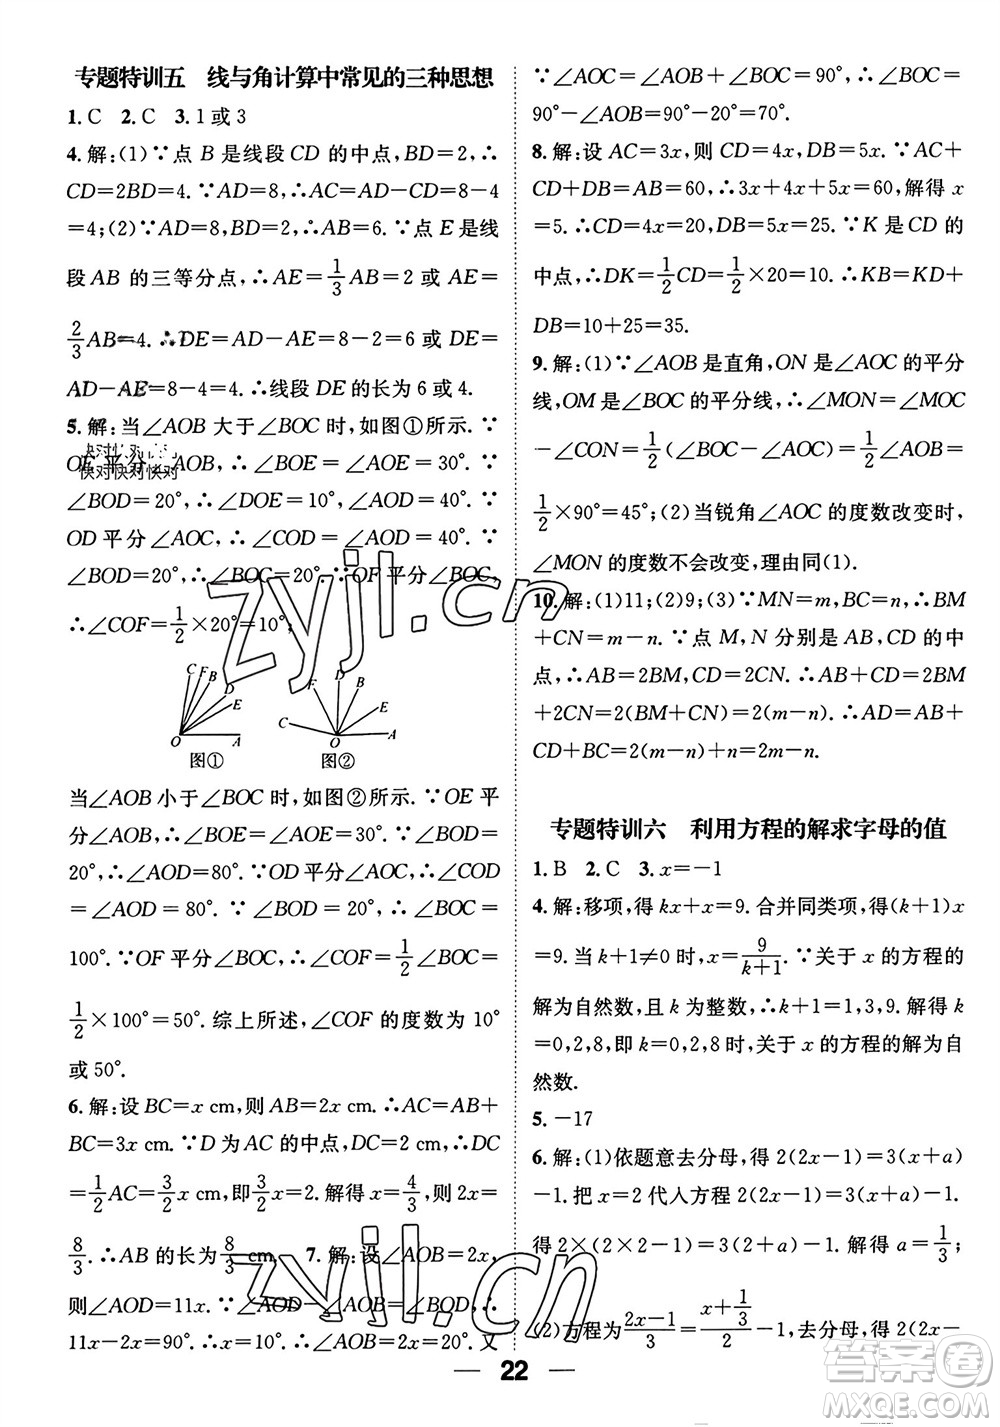 专题特训五　线与角计算中常见的三种思想
1.C　2.C　3.1或3
4.解:(1)∵点B是线段CD的中点,BD=2,∴
CD=2BD=4.∵AD=8,∴AC=AD-CD=8-4
=4;(2)∵AD=8,BD=2,∴AB=6.∵点E是线
段AB的三等分点,∴AE=1/3AB=2或AE=
2/3AB=4.∴DE=AD-AE=8-2=6或DE=
AD-AE=8-4=4.∴线段DE的长为6或4.
5.解:当∠AOB大于∠BOC时,如图①所示.∵
OE平分∠AOB,∴∠BOE=∠AOE=30°.∵
∠BOD=20°,∴∠DOE=10°,∠AOD=40°.∵
OD平分∠AOC,∴∠COD=∠AOD=40°.∵
∠BOD=20°,∴∠BOC=20°.∵OF平分∠BOC,
∴∠COF=1/2×20°=10°;
C F B D E O A
图①
F D B E C O A
图②
当∠AOB小于∠BOC时,如图②所示.∵OE平
分∠AOB,∴∠BOE=∠AOE=30°.∵∠BOD=
20°,∴∠AOD=80°.∵OD平分∠AOC,∴∠COD
=∠AOD=80°.∵∠BOD=20°,∴∠BOC=
100°.∵OF平分∠BOC,∴∠COF=1/2∠BOC=
1/2×100°=50°.综上所述,∠COF的度数为10°
或50°.
6.解:设BC=x cm,则AB=2x cm.∴AC=AB+
BC=3x cm.∵D为AC的中点,DC=2 cm,∴DC
=1/2AC=3/2x cm,即3/2x=2.解得x=4/3,则2x=
8/3.∴AB的长为8/3 cm.　7.解:设∠AOB=2x,
则∠AOD=11x.∵∠AOD-∠AOB=∠BOD,∴
11x-2x=90°.∴x=10°.∴∠AOB=2x=20°.又
∵∠AOC=∠AOB+∠BOC=90°,∴∠BOC=
90°-∠AOB=90°-20°=70°.
8.解:设AC=3x,则CD=4x,DB=5x.∵AC+
CD+DB=AB=60,∴3x+4x+5x=60,解得x
=5.∴CD=4x=20,DB=5x=25.∵K是CD的
中点,∴DK=1/2CD=1/2×20=10.∴KB=KD+
DB=10+25=35.
9.解:(1)∵∠AOB是直角,ON是∠AOC的平分
线,OM是∠BOC的平分线,∴∠MON=∠MOC
-∠CON=1/2∠BOC-1/2∠AOC=1/2∠AOB=
1/2×90°=45°;(2)当锐角∠AOC的度数改变时,
∠MON的度数不会改变,理由同(1).
10.解:(1)11;(2)9;(3)∵MN=m,BC=n,∴BM
+CN=m-n.∵点M,N分别是AB,CD的中
点,∴AB=2BM,CD=2CN.∴AB+CD=2BM
+2CN=2(BM+CN)=2(m-n).∴AD=AB+
CD+BC=2(m-n)+n=2m-n.
专题特训六　利用方程的解求字母的值
1.B　2.C　3.x=-1
4.解:移项,得kx+x=9.合并同类项,得(k+1)x
=9.当k+1≠0时,x=9/(k+1).∵关于x的方程的
解为自然数,且k为整数,∴k+1=1,3,9.解得k
=0,2,8,即k=0,2,8时,关于x的方程的解为自
然数.
5.-17
6.解:(1)依题意去分母,得2(2x-1)=3(x+a)
-1.把x=2代入方程2(2x-1)=3(x+a)-1.
得2×(2×2-1)=3(2+a)-1.解得a=1/3;
(2)方程为(2x-1)/3=(x+1/3)/2-1,去分母,得2(2x-
22
快对快对快对
zyjl.cn
zyjl.cn
答案圈
MXQE.COM